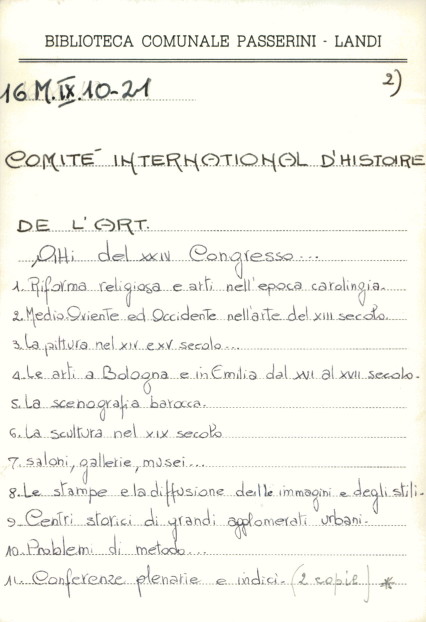 BIBLIOTECA COMUNALE PASSERINI - LANDI
2)
16 M.IX.10-21
COMITÉ INTERNATIONAL D'HISTOIRE
DE L'ART.
Atti del XXIV Congresso...
1. Riforma religiosa e arti nell'epoca carolingia.
2. Medio Oriente ed Occidente nell'arte del XIII secolo.
3. La pittura nel XIV e XV secolo...
4. Le arti a Bologna e in Emilia dal XVI al XVII secolo.
5. La scenografia barocca.
6. La scultura nel XIX secolo
7. saloni, gallerie, musei...
8. Le stampe e la diffusione delle immagini e degli stili.
9. Centri storici di grandi agglomerati urbani.
10. Problemi di metodo...
11. Conferenze plenarie e indici. (2 copie) *